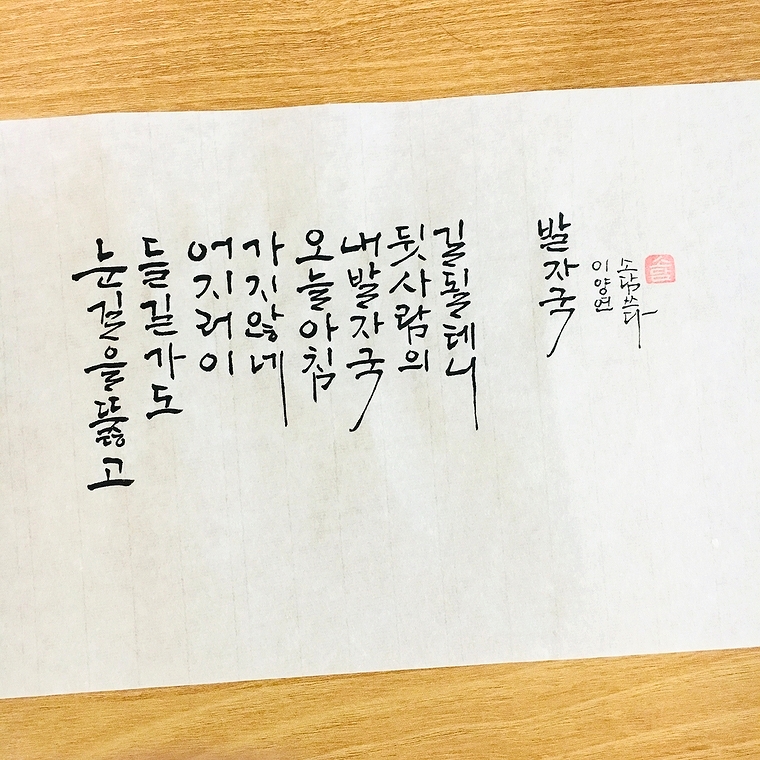 눈길을뚫고
들길가도
어지러이
가지않네
오늘아침
내발자국
뒷사람의
길될테니
발자국
이양연
소담쓰다